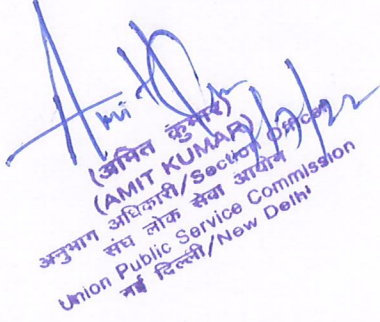 Amit
(अमित कुमार)
(AMIT KUMAR)
अनुभाग अधिकारी/Section Officer
संघ लोक सेवा आयोग
Union Public Service Commission
नई दिल्ली/New Delhi